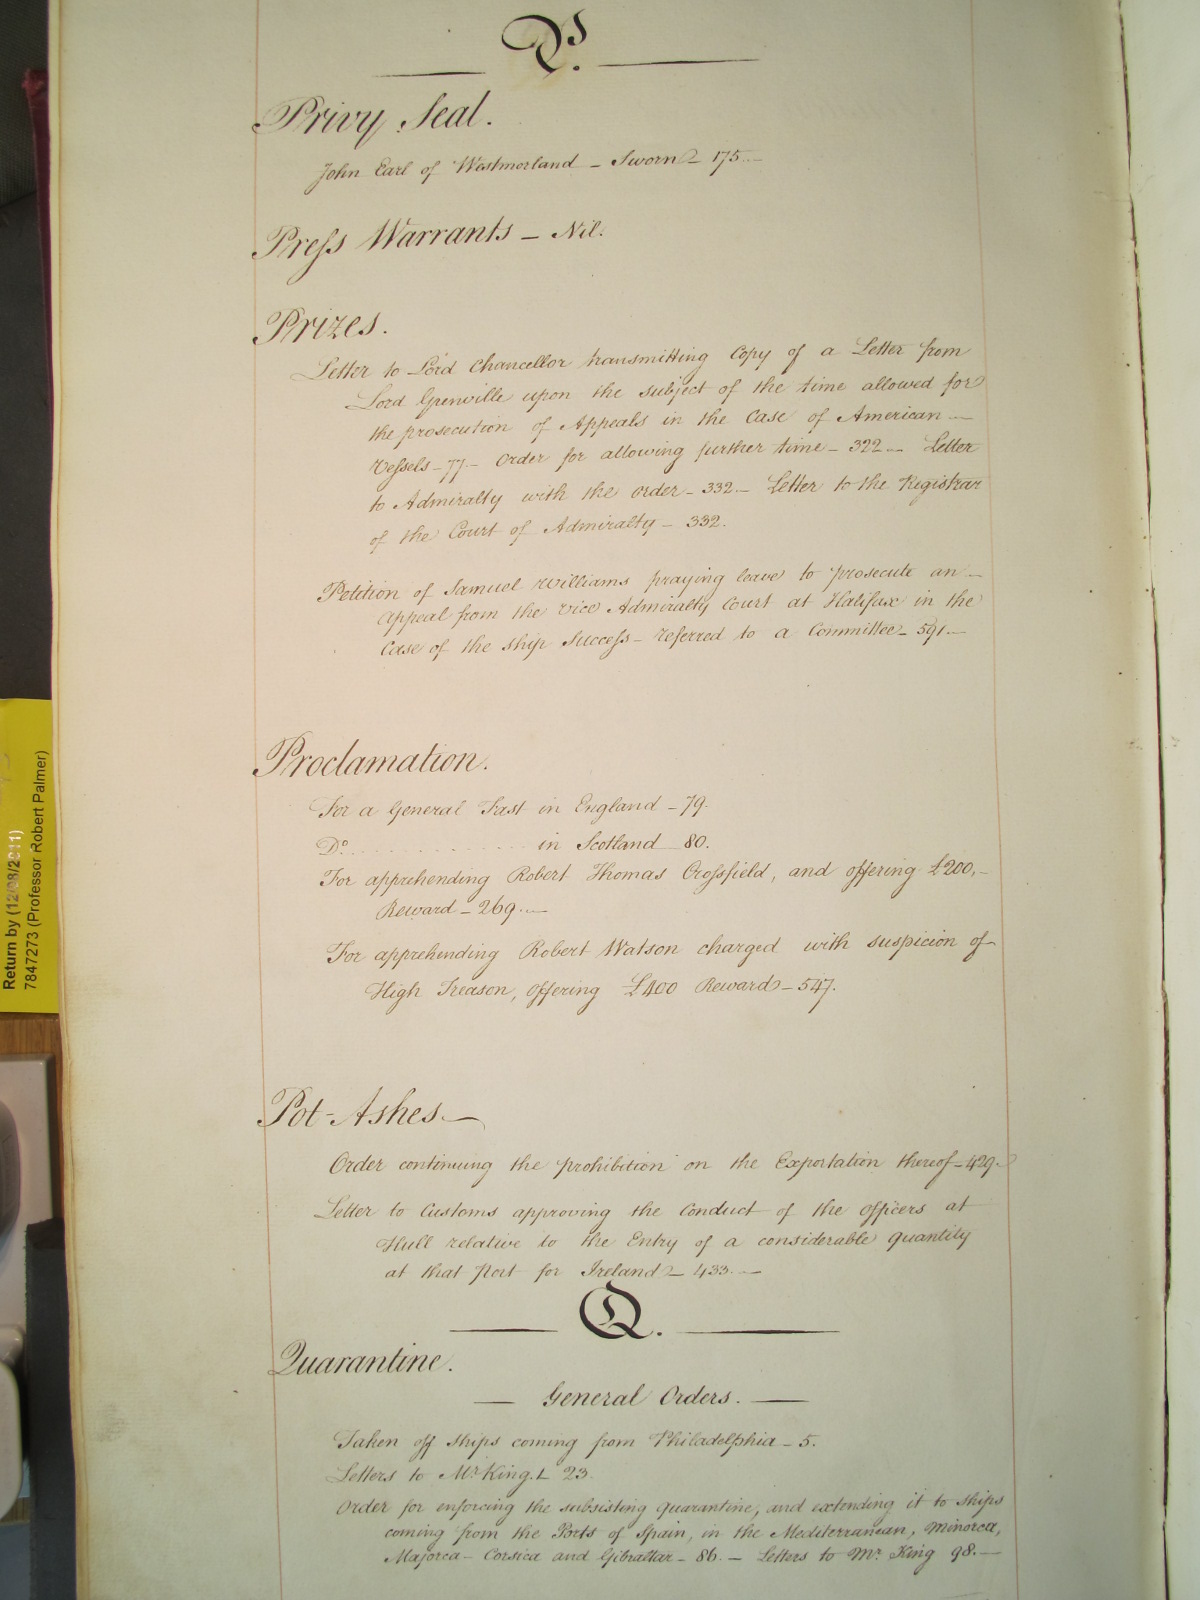 P.
Privy Seal.
John Earl of Westmorland – Sworn – 175.–
Press Warrants – Nil.
Prizes.
Letter to Lord Chancellor transmitting Copy of a Letter from
Lord Grenville upon the subject of the time allowed for
the prosecution of Appeals in the Case of American –
Vessels – 77 – Order for allowing further time – 322 – Letter
to Admiralty with the Order – 332 – Letter to the Registrar
of the Court of Admiralty – 332.
Petition of Samuel Williams praying leave to prosecute an –
Appeal from the Vice Admiralty Court at Halifax in the
Case of the ship Success – referred to a Committee – 591 –
Proclamation.
For a General Fast in England – 79.
Do. . . . . . . . . . . . . . in Scotland 80.
For apprehending Robert Thomas Crossfield, and offering £200, –
Reward – 269. –
For apprehending Robert Watson charged with suspicion of
High Treason, offering £400 Reward – 547.
Pot-Ashes –
Order continuing the prohibition on the Exportation thereof – 429.
Letter to Customs approving the Conduct of the Officers at
Hull relative to the Entry of a considerable quantity
at that Port for Ireland – 433. –
Q.
Quarantine.
— General Orders. —
Taken off ships coming from Philadelphia – 5.
Letters to Mr. King. – 23.
Order for enforcing the subsisting Quarantine, and extending it to ships
coming from the Ports of Spain, in the Mediterranean, Minorca,
Majorca – Corsica and Gibraltar – 86. – Letters to Mr. King 98. –
Return by (12/08/2011)
7847273 (Professor Robert Palmer)